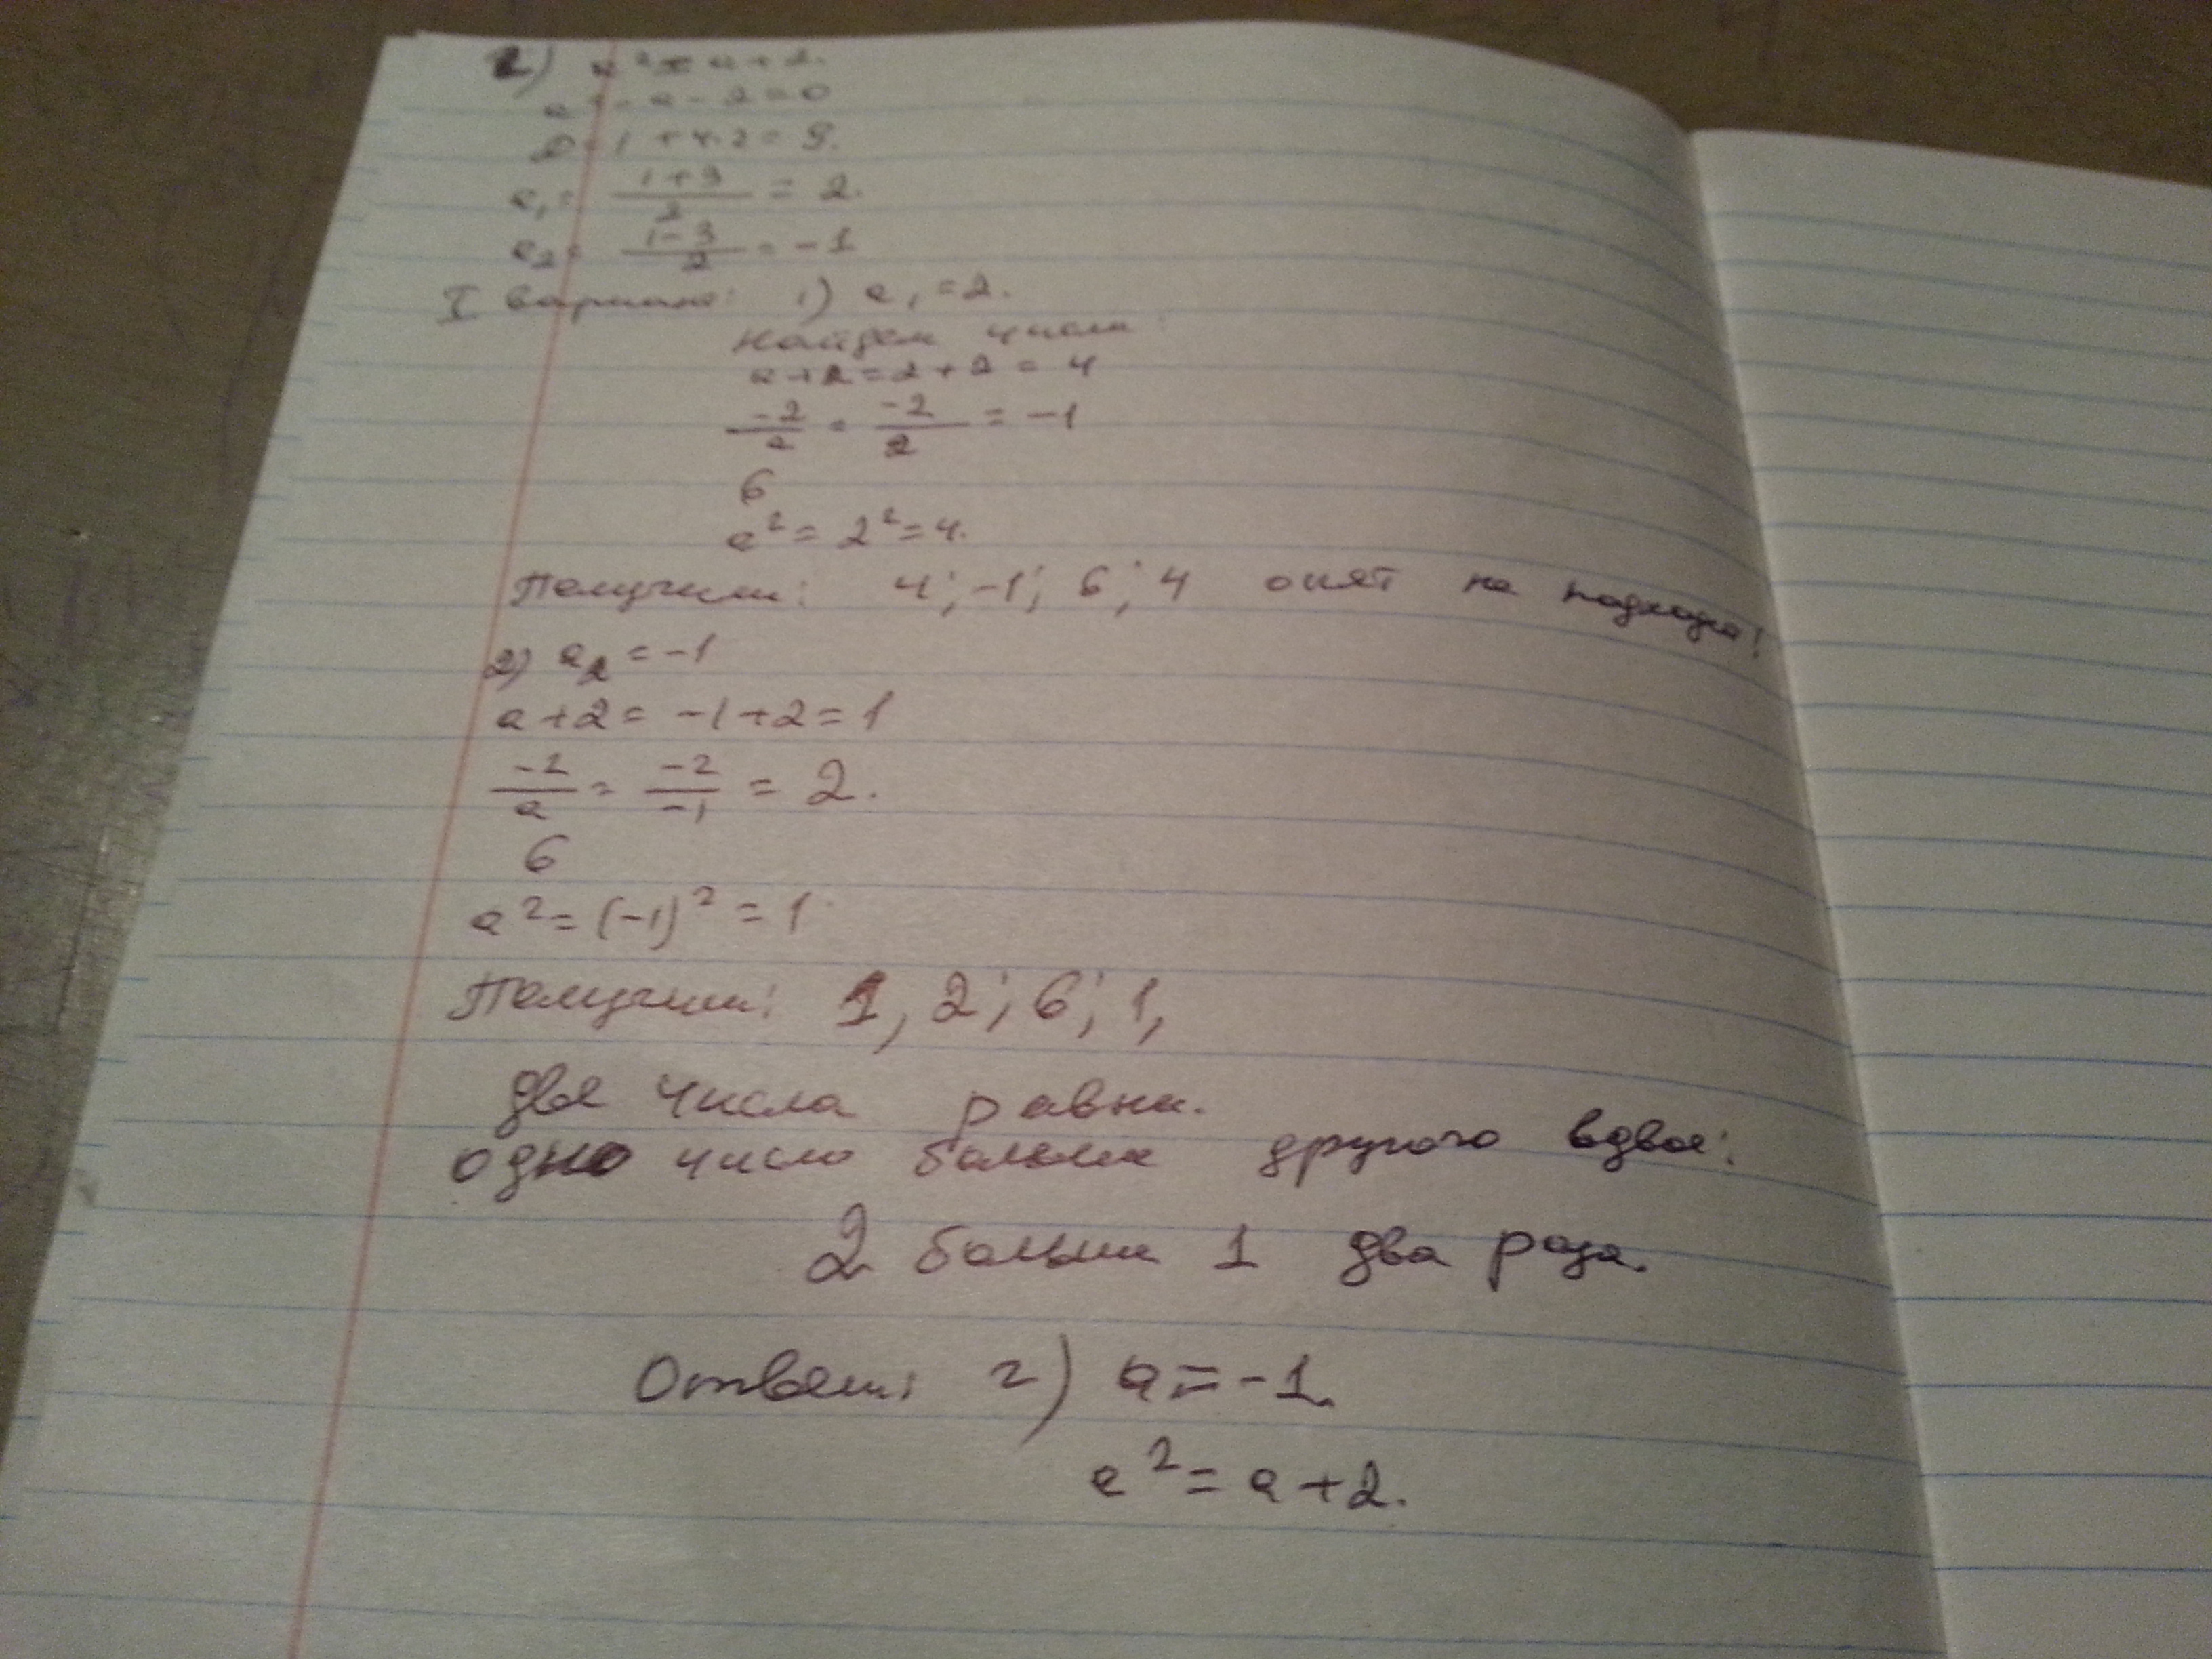 г) a² = a+2.
a² - a - 2 = 0
D = 1 + 4·2 = 9.
a₁ = (1+3)/2 = 2.
a₂ = (1-3)/2 = -1
I вариант: 1) a₁ = 2.
Найдем числа:
a+2 = 2+2 = 4
-2/a = -2/2 = -1
6
a² = 2² = 4.
Получили: 4; -1; 6; 4 опят не подходит!
2) a₂ = -1
a+2 = -1+2 = 1
-2/a = -2/-1 = 2.
6
a² = (-1)² = 1
Получили: 1, 2; 6; 1,
две числа равны.
одно число больше другого вдвое:
2 больше 1 два раза.
Ответ: г) a = -1.
a² = a+2.